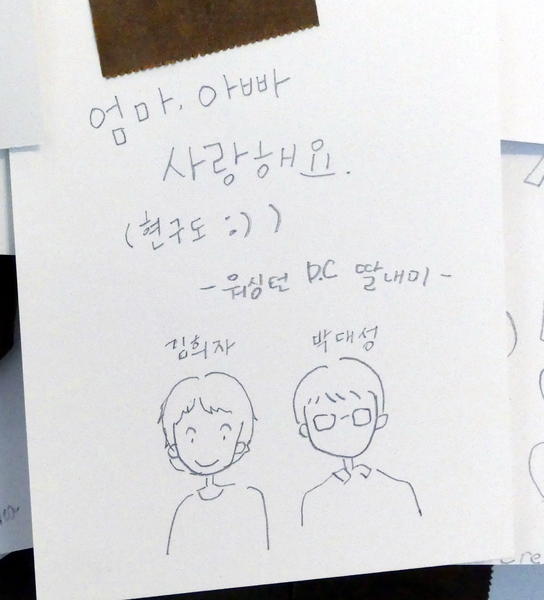 엄마, 아빠
사랑해요.
(현구도 :) )
-워싱턴 D.C 딸내미-
김희자 박대성